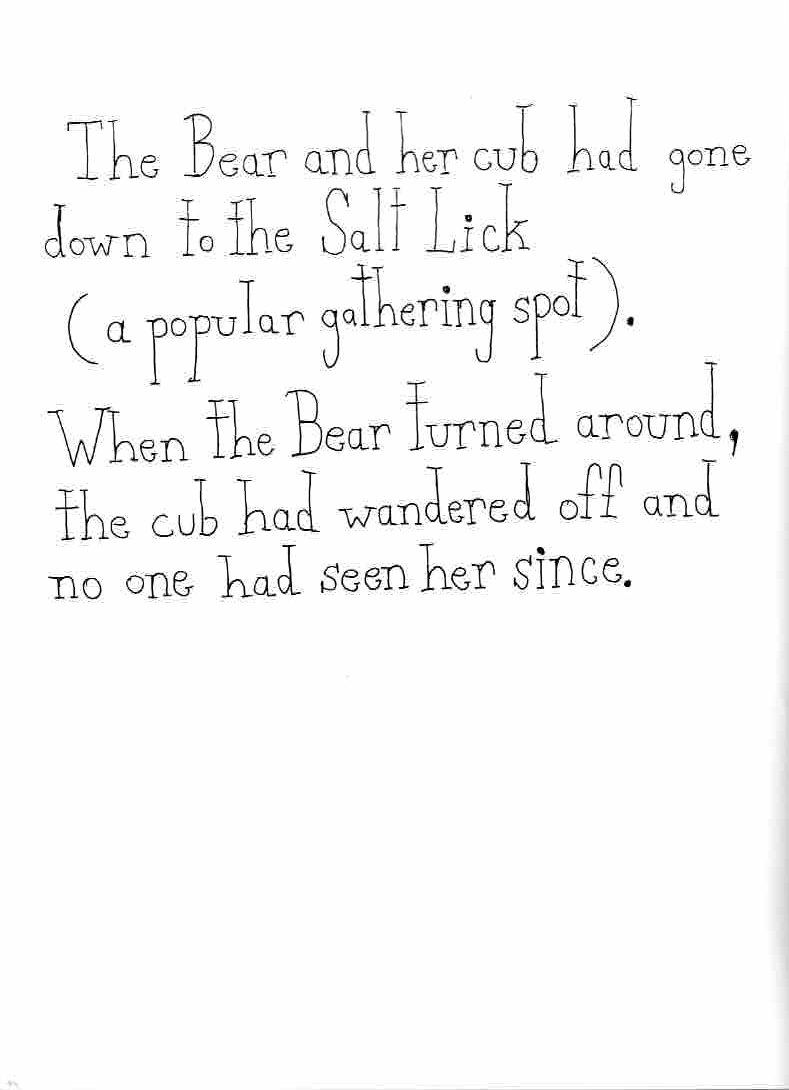 The Bear and her cub had gone
down to the Salt Lick
(a popular gathering spot).
When the Bear turned around,
the cub had wandered off and
no one had seen her since.